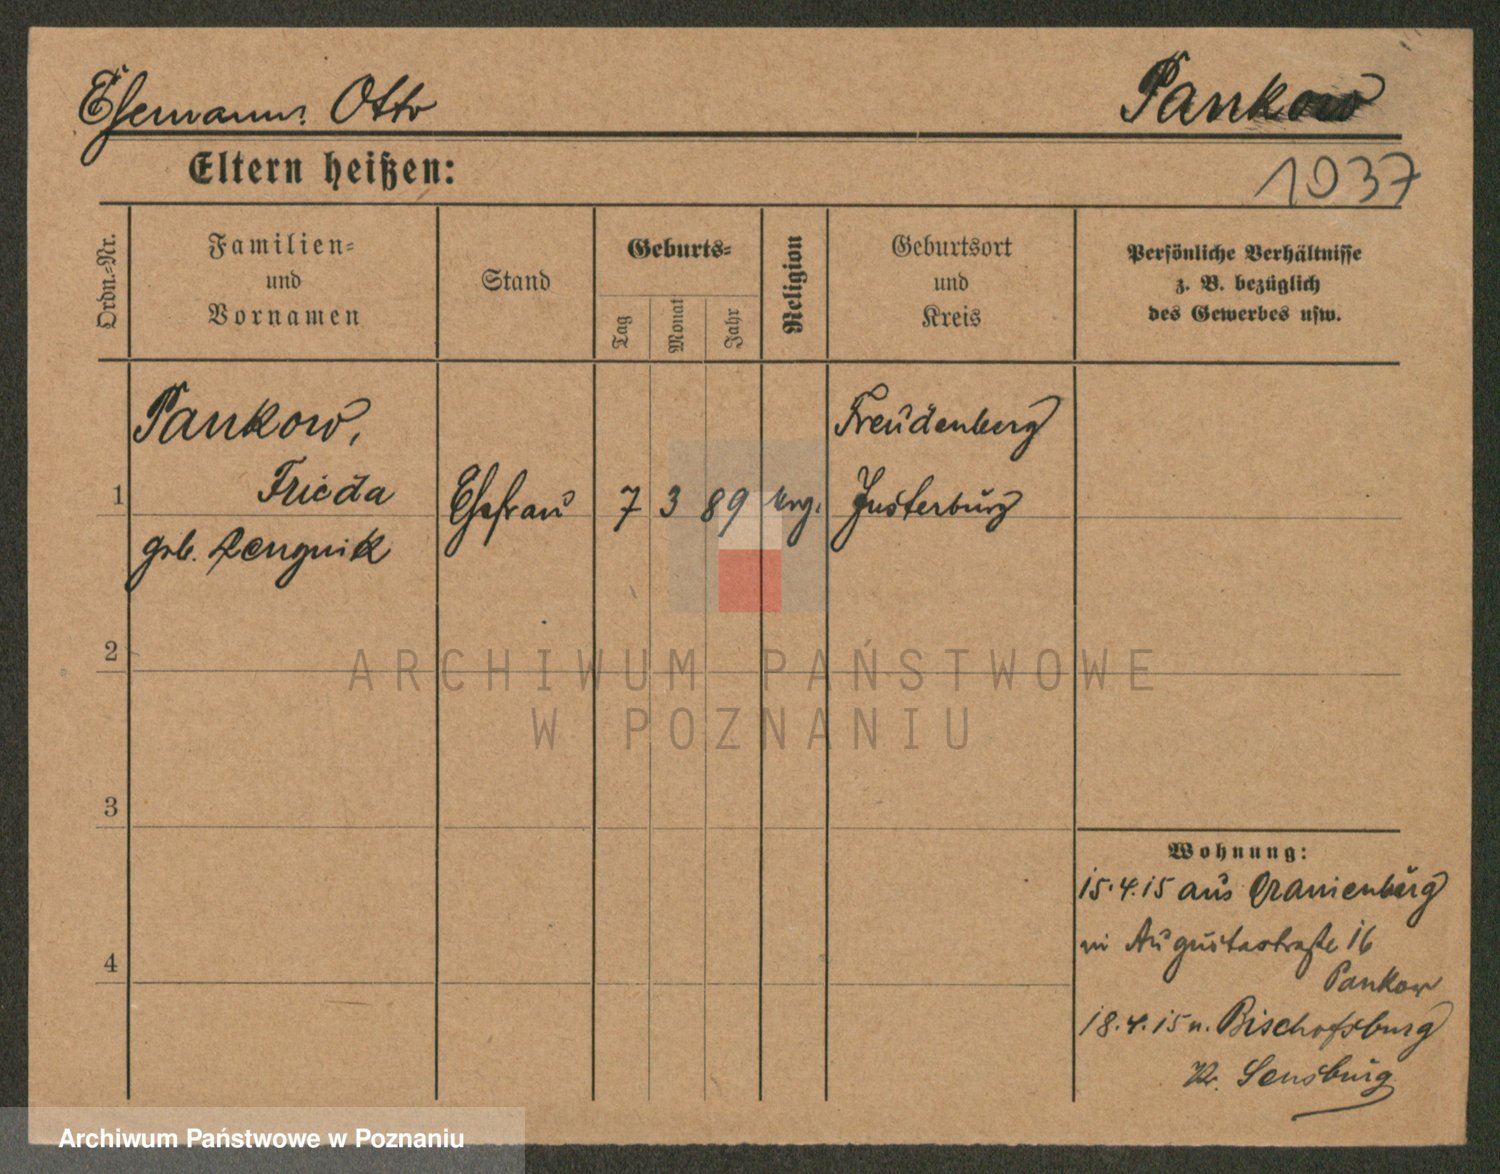 Ehemann: Otto
Pankow
Eltern heißen:
1037
Ordn.-Nr.
Familien-
und
Vornamen
Stand
Geburts-
Tag
Monat
Jahr
Religion
Geburtsort
und
Kreis
Persönliche Verhältnisse
z. B. bezüglich
des Gewerbes usw.
Pankow,
Frieda
geb.
1
Ehefrau
7
3
89
Freudenberg
Insterburg
2
3
4
Wohnung:
15.4.15 aus Oranienburg
in Augustastraße 16
Pankow
18.4.15 n. Bischofsburg
Kr. Sensburg
ARCHIWUM PAŃSTWOWE
W POZNANIU
Archiwum Państwowe w Poznaniu